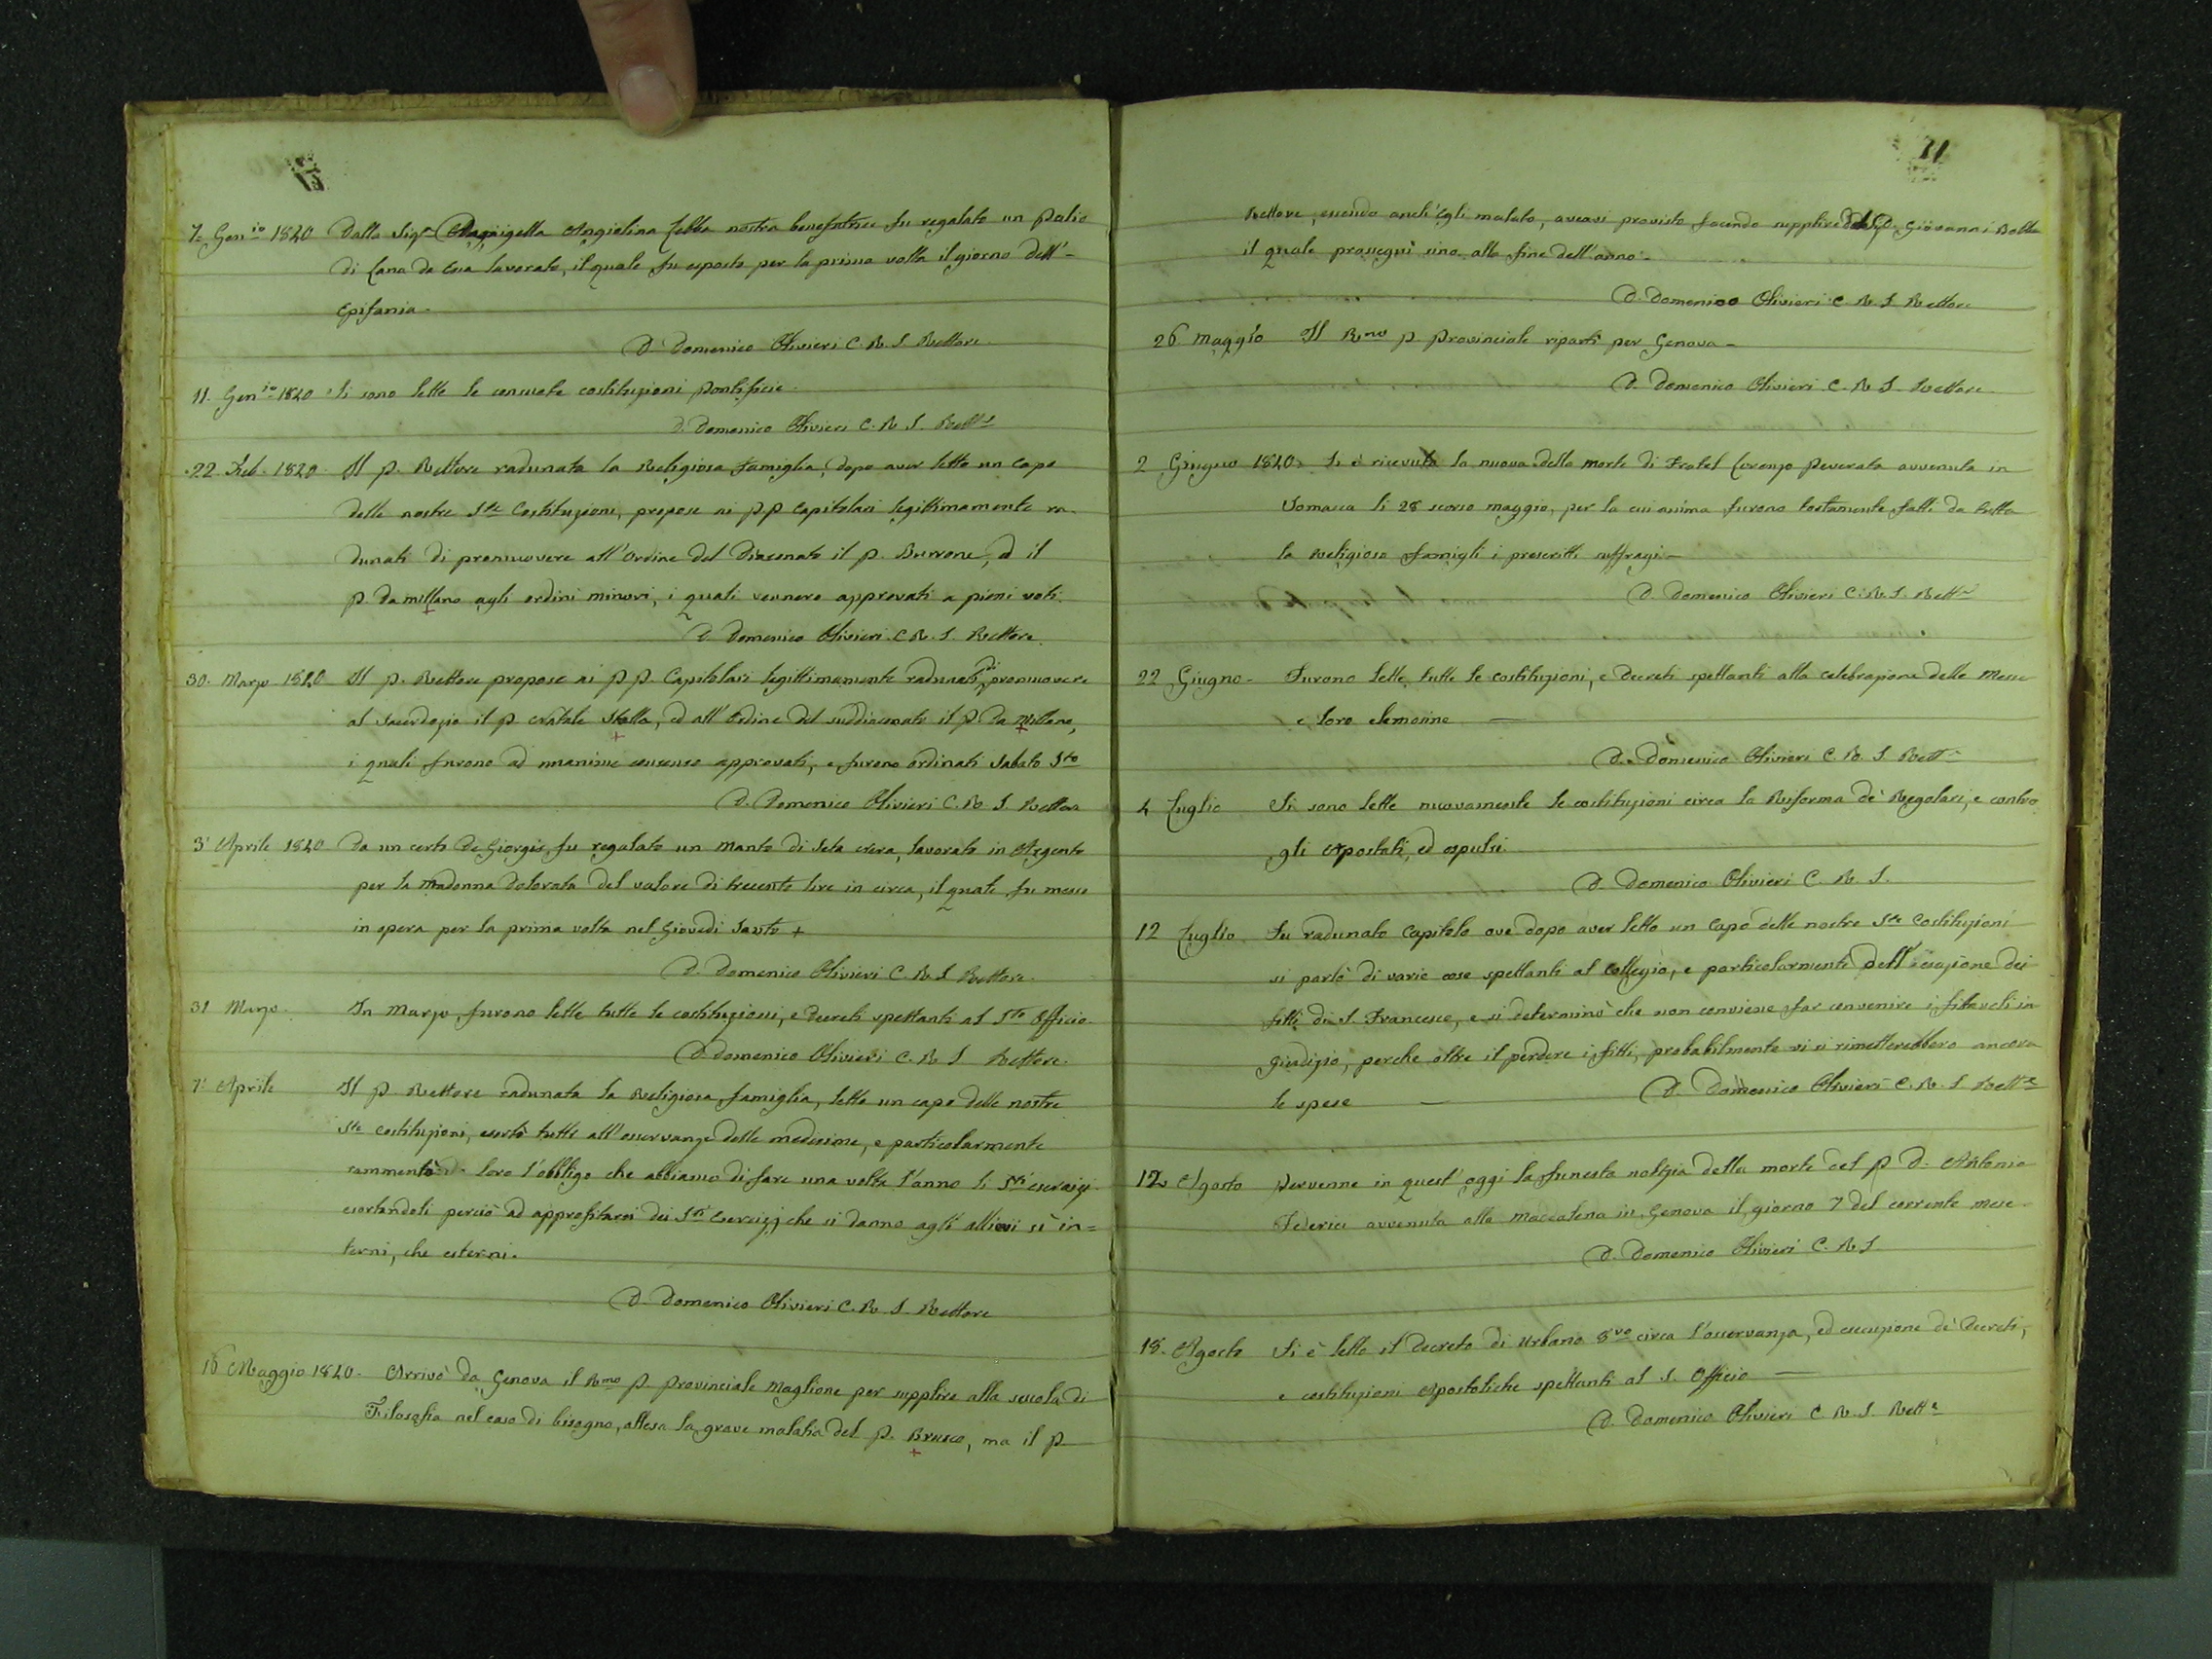 7. Gen.io 1820 Dalla Sig.a Damigella Angiolina Cebba nostra benefattrice fu regalato un palio
di Lana da Essa lavorato, il quale fu esposto per la prima volta il giorno dell'-
Epifania.
D. Domenico Olivieri C. R. S. Rettore.
11. Gen.io 1820 Si sono lette le consuete costituzioni Pontificie.
D. Domenico Olivieri C. R. S. Rett.e
22. Feb. 1820. Il P. Rettore radunata la Religiosa famiglia, dopo aver letto un capo
delle nostre S.te Costituzioni, propose ai PP Capitolari legittimamente ra-
dunati di promuovere all'Ordine del Diaconato il P. Burrone, ed il
P. da Millano agli ordini minori, i quali vennero approvati a pieni voti.
D Domenico Olivieri C. R. S. Rettore.
30. Marzo 1820 Il P. Rettore propose ai PP. Capitolari legittimamente radunati di promuovere
al Sacerdozio il P. Natale Stalla, ed all'Ordine del suddiaconato il P. Da Millano,
i quali furono ad unanime consenso approvati, e furono ordinati Sabato S.to
D. Domenico Olivieri C. R. S. Rettore
3 Aprile 1820 Da un certo De Giorgis fu regalato un Manto di Seta nera, lavorato in Argento
per la Madonna Dolorata del valore di trecento lire in circa, il quale fu messo
in opera per la prima volta nel Giovedì Santo +
D. Domenico Olivieri C. R. S. Rettore.
31 Marzo. In Marzo furono lette tutte le costituzioni, e Decreti spettanti al S.to Officio.
D. Domenico Olivieri C. R. S Rettore.
7 Aprile Il P. Rettore radunata la Religiosa famiglia, letto un capo delle nostre
S.te costituzioni, esortò tutti all'osservanza delle medesime, e particolarmente
rammentò loro l'obbligo che abbiamo di fare una volta l'anno li S.ti esercizi
esortandoli perciò ad approfitarsi dei S.ti Esercizj che si danno agli allievi sì in=
terni, che esterni.
D. Domenico Olivieri C. R. S. Rettore
16 Maggio 1820. Arrivò da Genova il R.mo P. Provinciale Maglione per supplire alla scuola di
Filosofia nel caso di bisogno, attesa la grave malatia del P. Brusco, ma il P.
11
Rettore, essendo anch'Egli malato, aveavi provisto facendo supplire dal Giovanni
il quale proseguì sino alla fine dell'anno.
D. Domenico Olivieri C. R. S Rettore
26. Maggio Il R.mo P. Provinciale ripartì per Genova -
D. Domenico Olivieri C. R. S. Rettore
2 Giugno 1820. Si è ricevuta la nuova della morte di Fratel Lorenzo Peverata avvenuta in
Somasca li 28 scorso maggio, per la cui anima furono tostamente fatti da tutta
la Religiosa famigli i prescritti suffragi.-
D. Domenico Olivieri C. R. S. Rett.e
22 Giugno - Furono lette tutte le costituzioni, e Decreti spettanti alla celebrazione delle Messe
e loro elemosine —
D. Domenico Olivieri C. R. S Rett.e
4 Luglio Si sono lette nuovamente le costituzioni circa la Riforma de' Regolari, e contro
gli Apostati, ed espulsi.
D. Domenico Olivieri C. R. S.
12 Luglio. Fu radunato Capitolo ove dopo aver letto un Capo delle nostre S.te Costituzioni
si parlò di varie cose spettanti al Collegio, e particolarmente dell'esazione dei
fitti di S. Francesco, e si determinò che non conviene far convenire i fittavoli in
Giudizio, perche oltre il perdere i fitti, probabilmente vi si rimetterebbero ancora
le spese — D. Domenico Olivieri C. R. S Rett.e
12 Agosto Pervenne in quest'oggi la funesta notizia della morte del P D. Antonio
Federici avvenuta alla Maddalena in Genova il giorno 7 del corrente mese.
D. Domenico Olivieri C. R. S
18. Agosto Si è letto il Decreto di Urbano 8.vo circa l'osservanza, ed esecuzione de' Decreti,
e costituzioni Apostoliche spettanti al S. Officio —
D. Domenico Olivieri C. R. S. Rett.e